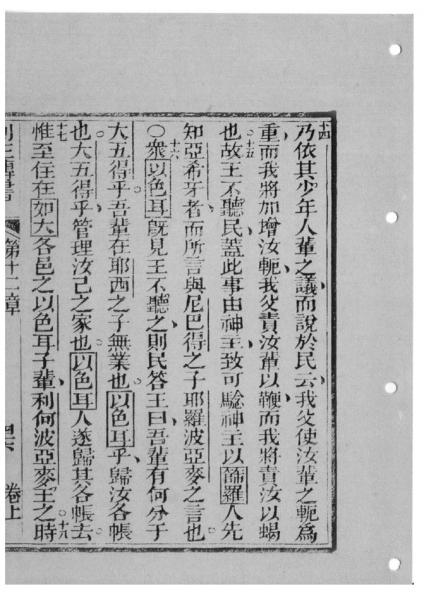 十四乃依其少年人輩之議而說於民云我父使汝輩之軛為
重而我將加增汝軛我父責汝輩以鞭而我將責汝以蝎
也十五故王不聽民蓋此事由神主致可騐神主以篩羅人先
知亞希牙者而所言與尼巴得之子耶羅波亞麥之言也
○十六衆以色耳既見王不聽之則民答王曰吾輩有何分于
大五得乎吾輩在耶西之子無業也以色耳乎歸汝各帳
也大五得乎管理汝己之家也以色耳人遂歸其各帳去
十七惟至住在如大各邑之以色耳子輩利何波亞麥王之時十八
列王傳書 第十二章 卷上